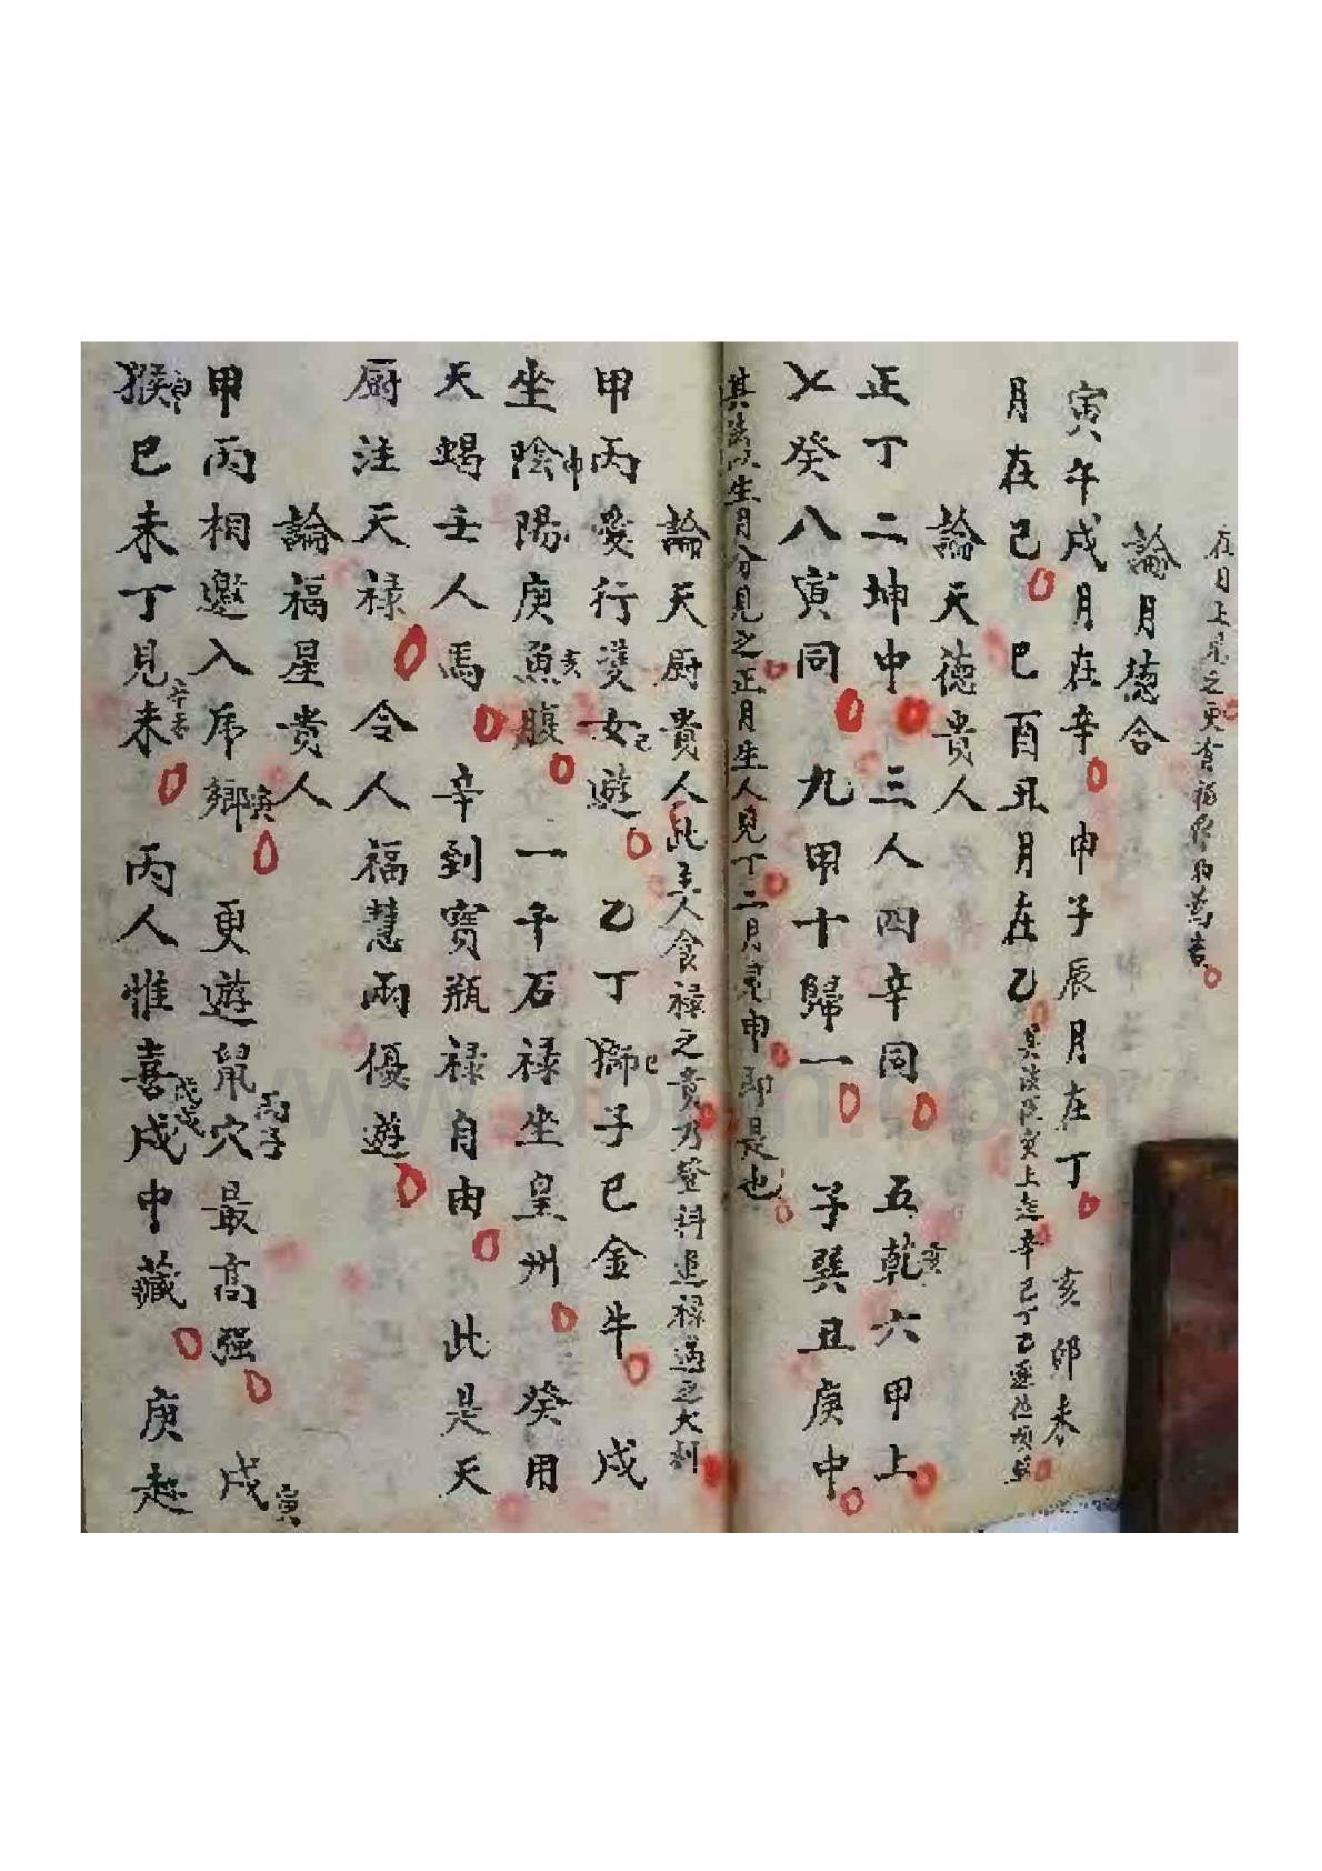 在日上見之更吉福厚的為吉
論月德合
寅午戌月在辛 申子辰月在丁 亥卯未
月在己 巳酉丑月在乙 其法從寅上起辛己丁乙逐位順
論天德貴人
正丁二坤申 三人四辛同 五乾亥六甲上
七癸八寅同 九甲十歸一 子巽丑庚中
其法以生月分見之正月生人見丁二月見申即是也
論天厨貴人此主人食祿之貴乃登科進祿遇之大利
甲丙愛行雙女巳遊 乙丁獅巳子巳金牛 戊
坐陰申陽庚魚亥腹 一千石祿坐皇州 癸用
天蝎壬人馬 辛到寶瓶祿自由 此是天
厨注天祿 令人福慧兩優遊
論福星貴人
甲丙相邀入虎鄉寅 更遊鼠丙子穴最高强 戊寅
猴申巳未丁見辛未未 丙人惟喜戊戌戌中藏 庚趂
www.docin.com